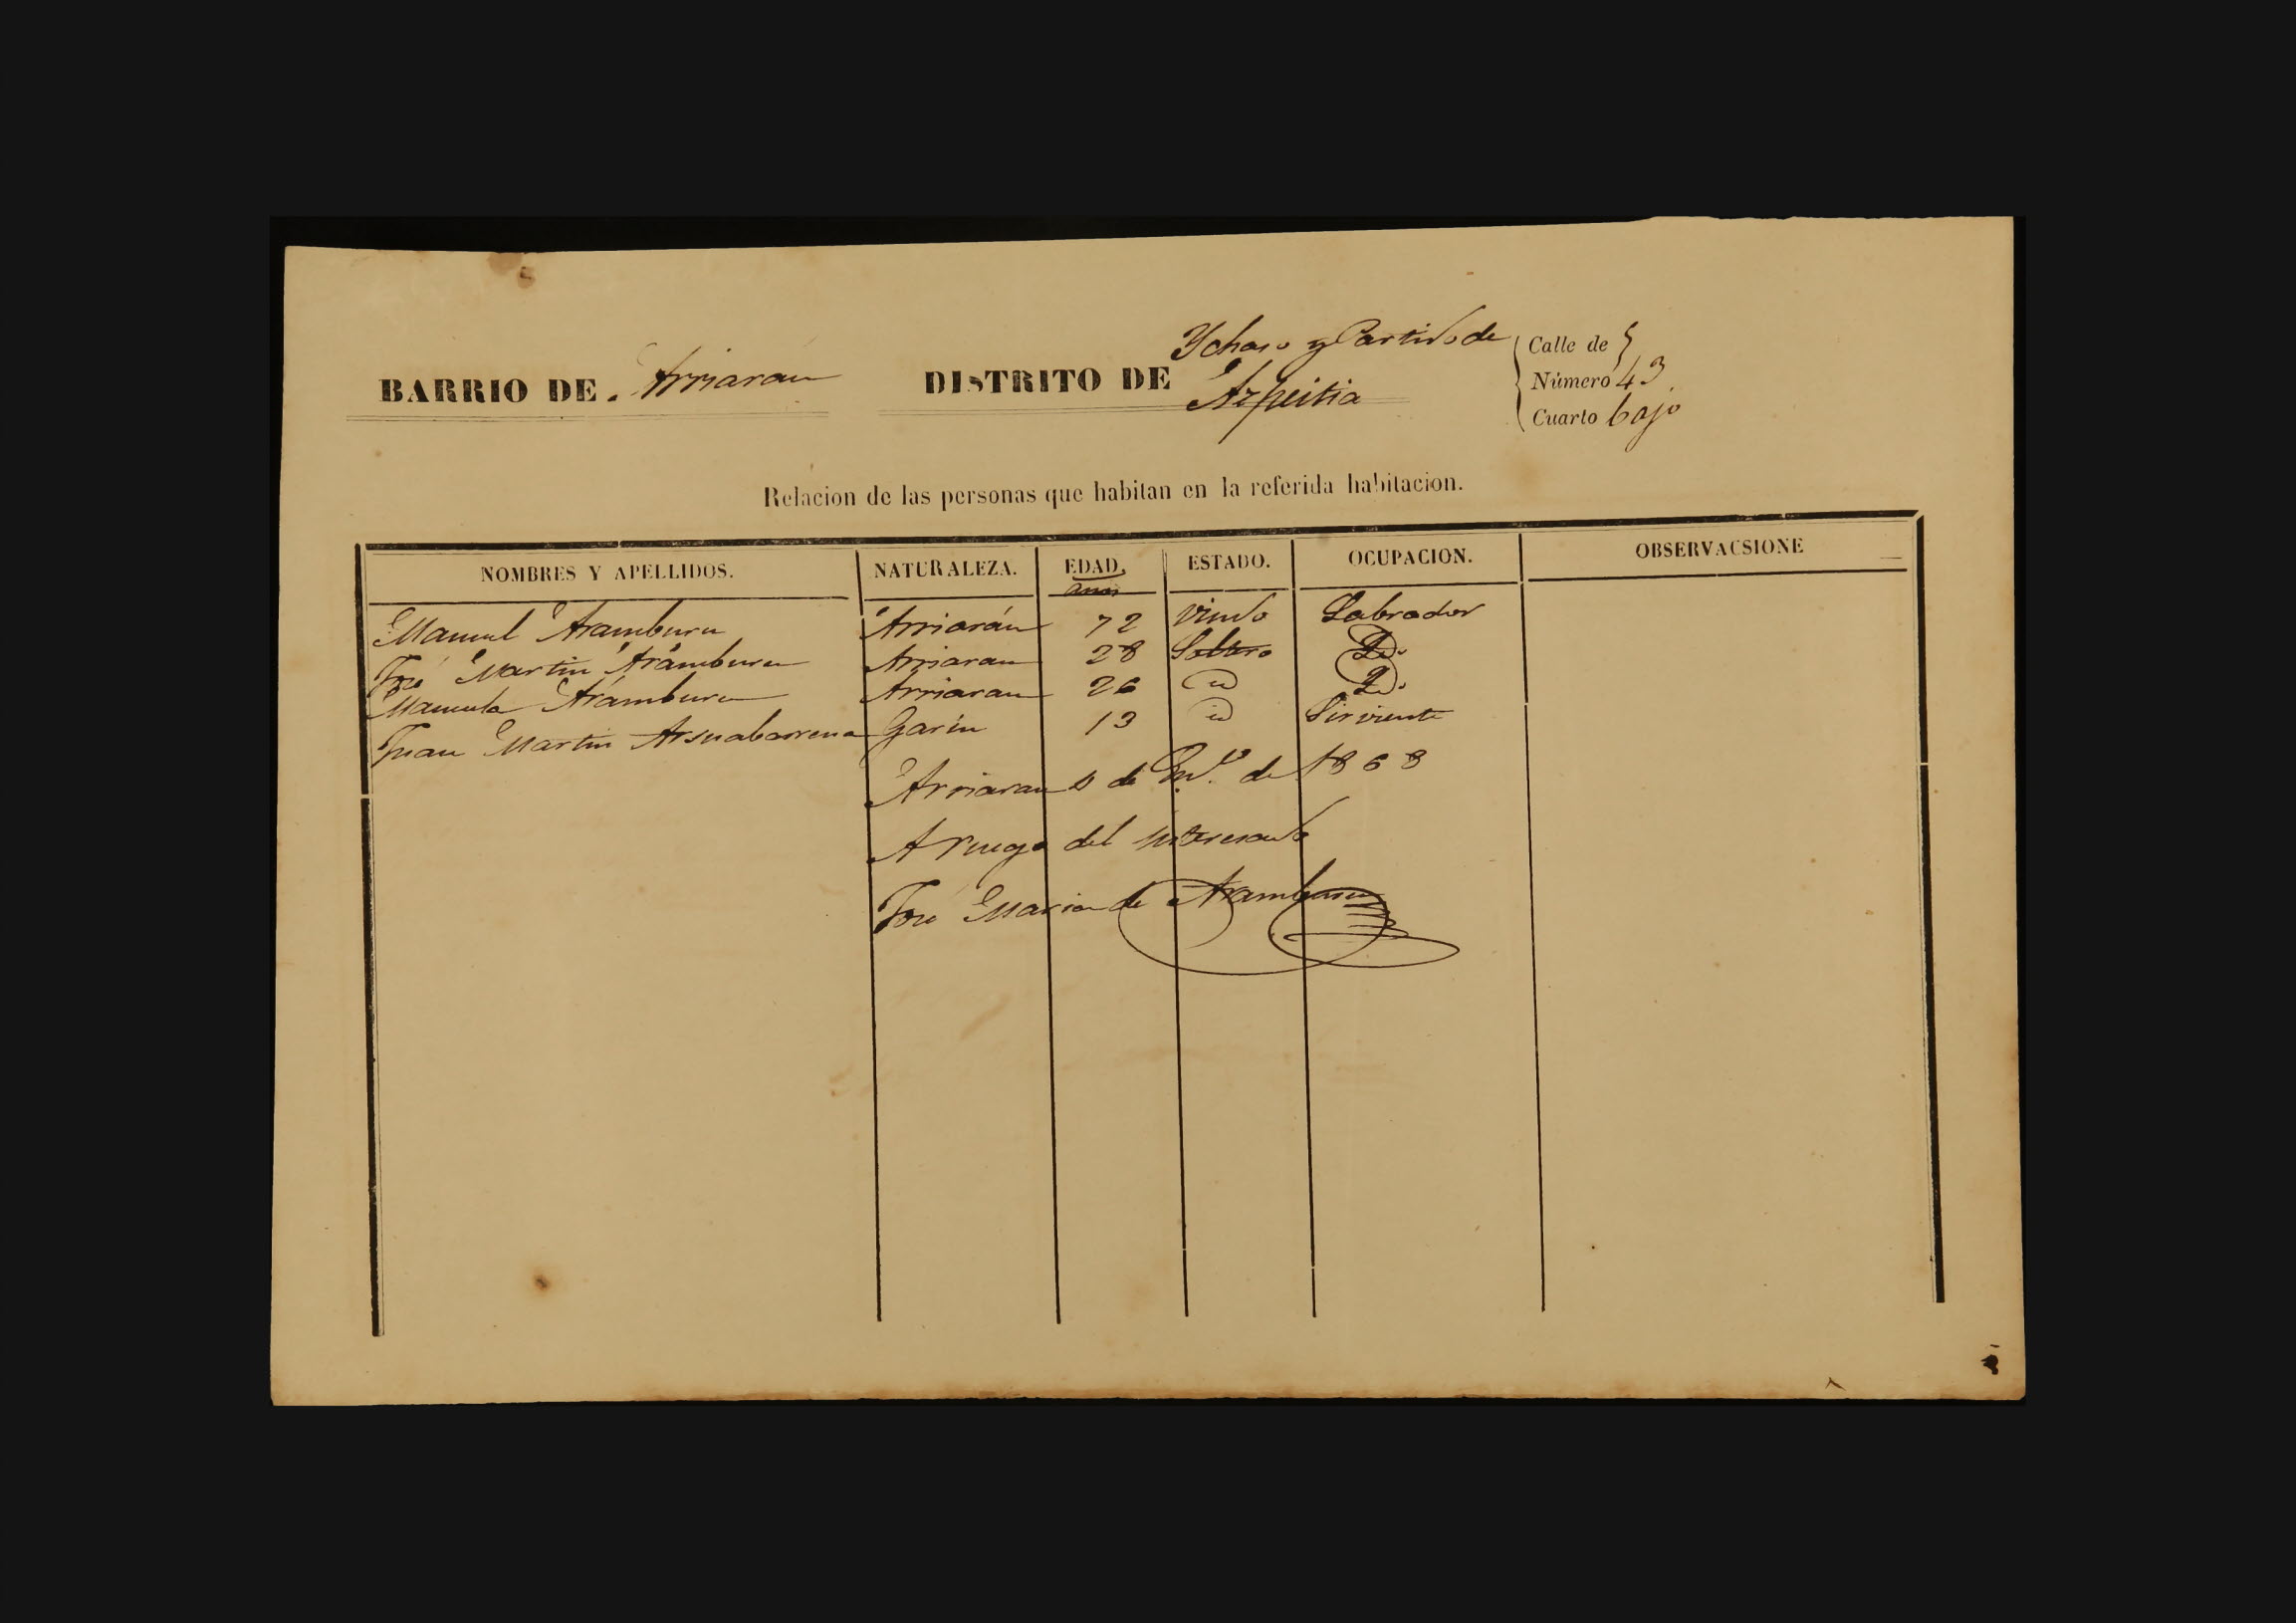 BARRIO DE. Arriarán DISTRITO DE Ychaso y Partido de Azpeitia
Calle de
Número 43.
Cuarto bajo
Relacion de las personas que habitan en la referida habitacion.
NOMBRES Y APELLIDOS. NATURALEZA. EDAD. ESTADO. OCUPACION. OBSERVACSIONE
años
Manuel Aramburu Arriarán 72 viudo Labrador
José Martin Aramburu Arriaran 28 Soltero Id.
Manuela Aramburu Arriaran 26 id Id.
Juan Martin Arsuabarrena Garin 13 id Sirviente
Arriaran de En.º de 1868
A ruego del interesado
José Maria de Aramburu